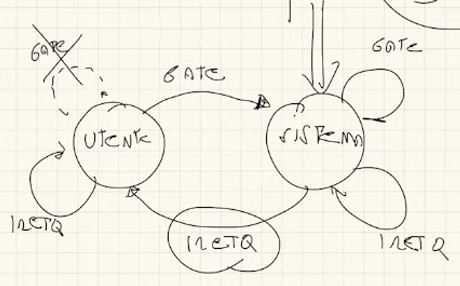 GATE
GATE
GATE
UTENTE
SISTEMA
IRETQ
IRETQ
IRETQ